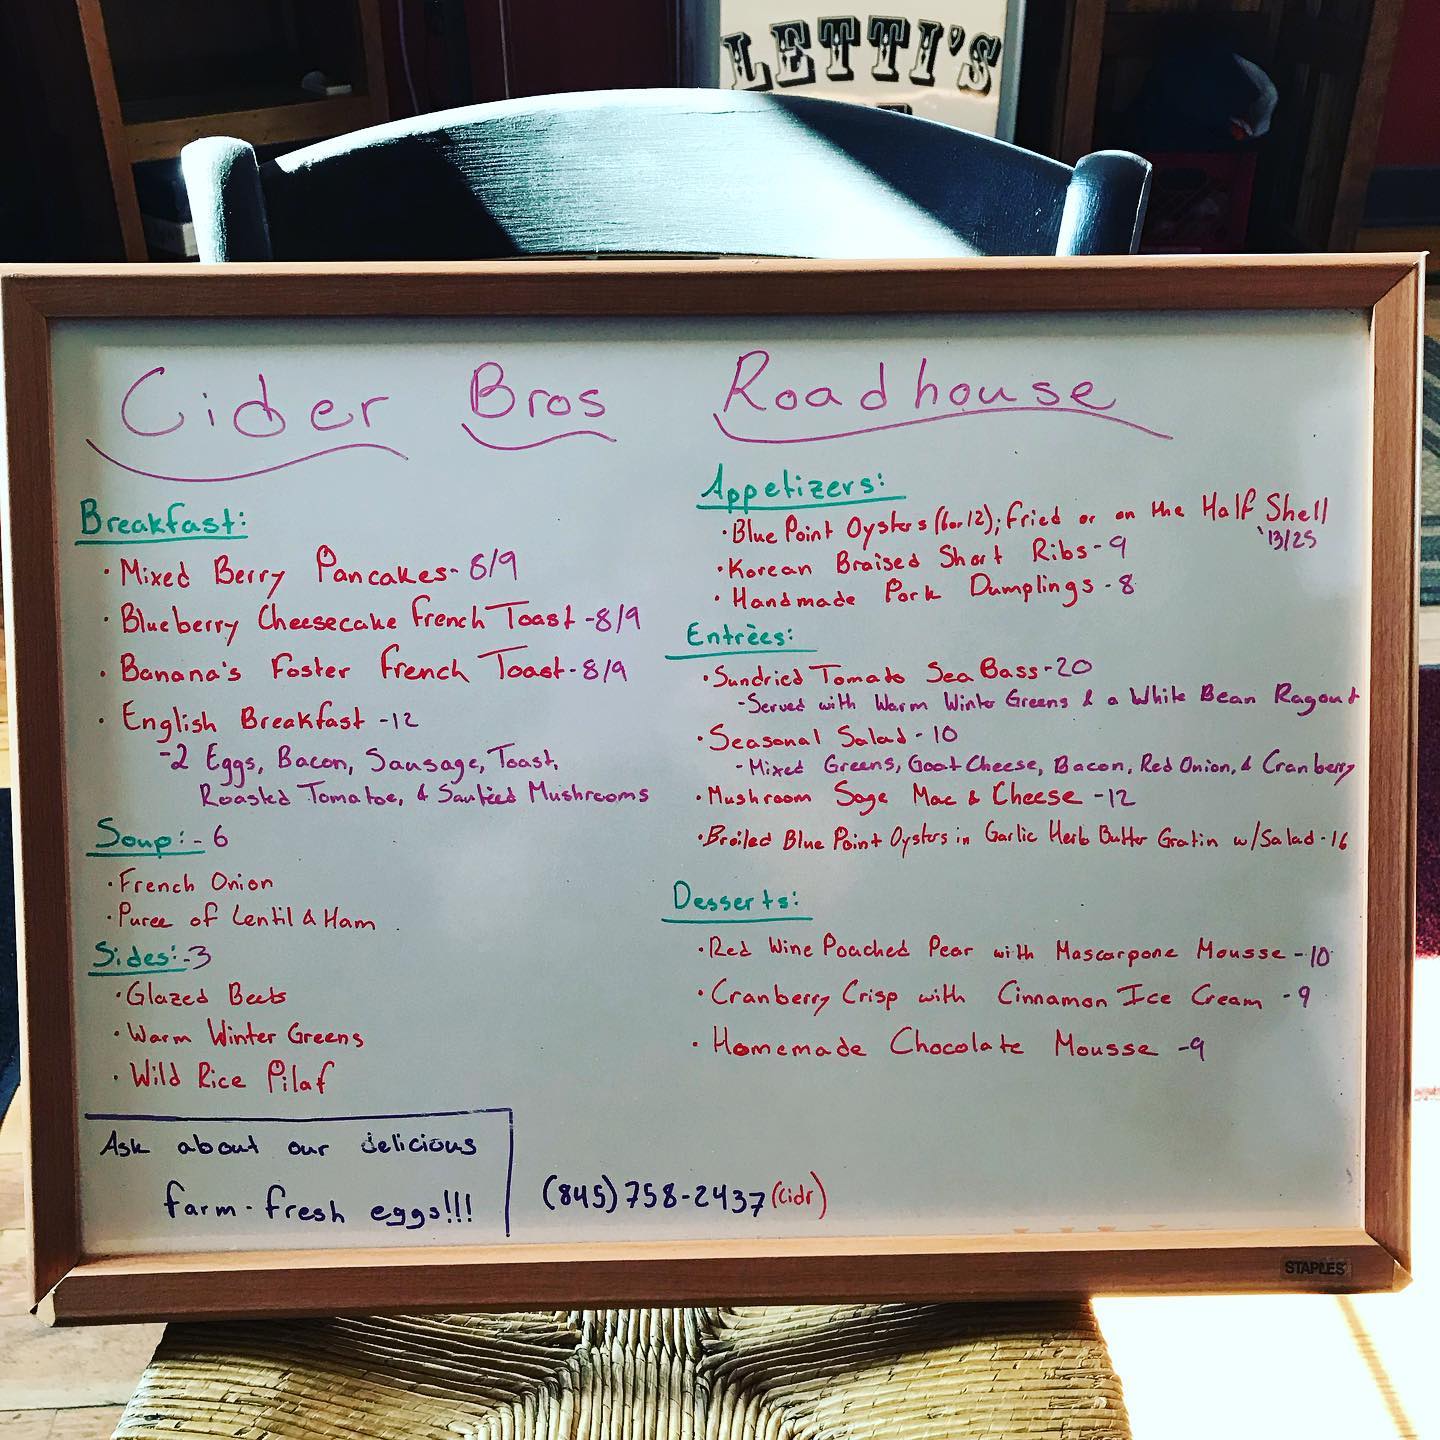 LETTI'S
Cider Bros Roadhouse
Breakfast:
· Mixed Berry Pancakes- 8/9
· Blueberry Cheesecake French Toast -8/9
· Banana's Foster French Toast- 8/9
· English Breakfast -12
-2 Eggs, Bacon, Sausage, Toast,
Roasted Tomatoe, & Sauteed Mushrooms
Soup: - 6
· French Onion
· Puree of Lentil & Ham
Sides: -3
· Glazed Beets
· Warm Winter Greens
· Wild Rice Pilaf
Ask about our delicious
farm-fresh eggs!!!
Appetizers:
· Blue Point Oysters (6 or 12); Fried or on the Half Shell
13/25
· Korean Braised Short Ribs- 9
· Handmade Pork Dumplings - 8
Entrèes:
· Sundried Tomato Sea Bass - 20
- Served with Warm Winter Greens & a White Bean Ragout
· Seasonal Salad - 10
- Mixed Greens, Goat Cheese, Bacon, Red Onion, & Cranberry
· Mushroom Sage Mac & Cheese -12
· Broiled Blue Point Oysters in Garlic Herb Butter Gratin w/Salad - 16
Desserts:
· Red Wine Poached Pear with Mascarpone Mousse - 10
· Cranberry Crisp with Cinnamon Ice Cream - 9
· Homemade Chocolate Mousse -9
(845) 758-2437 (cidr)
STAPLES